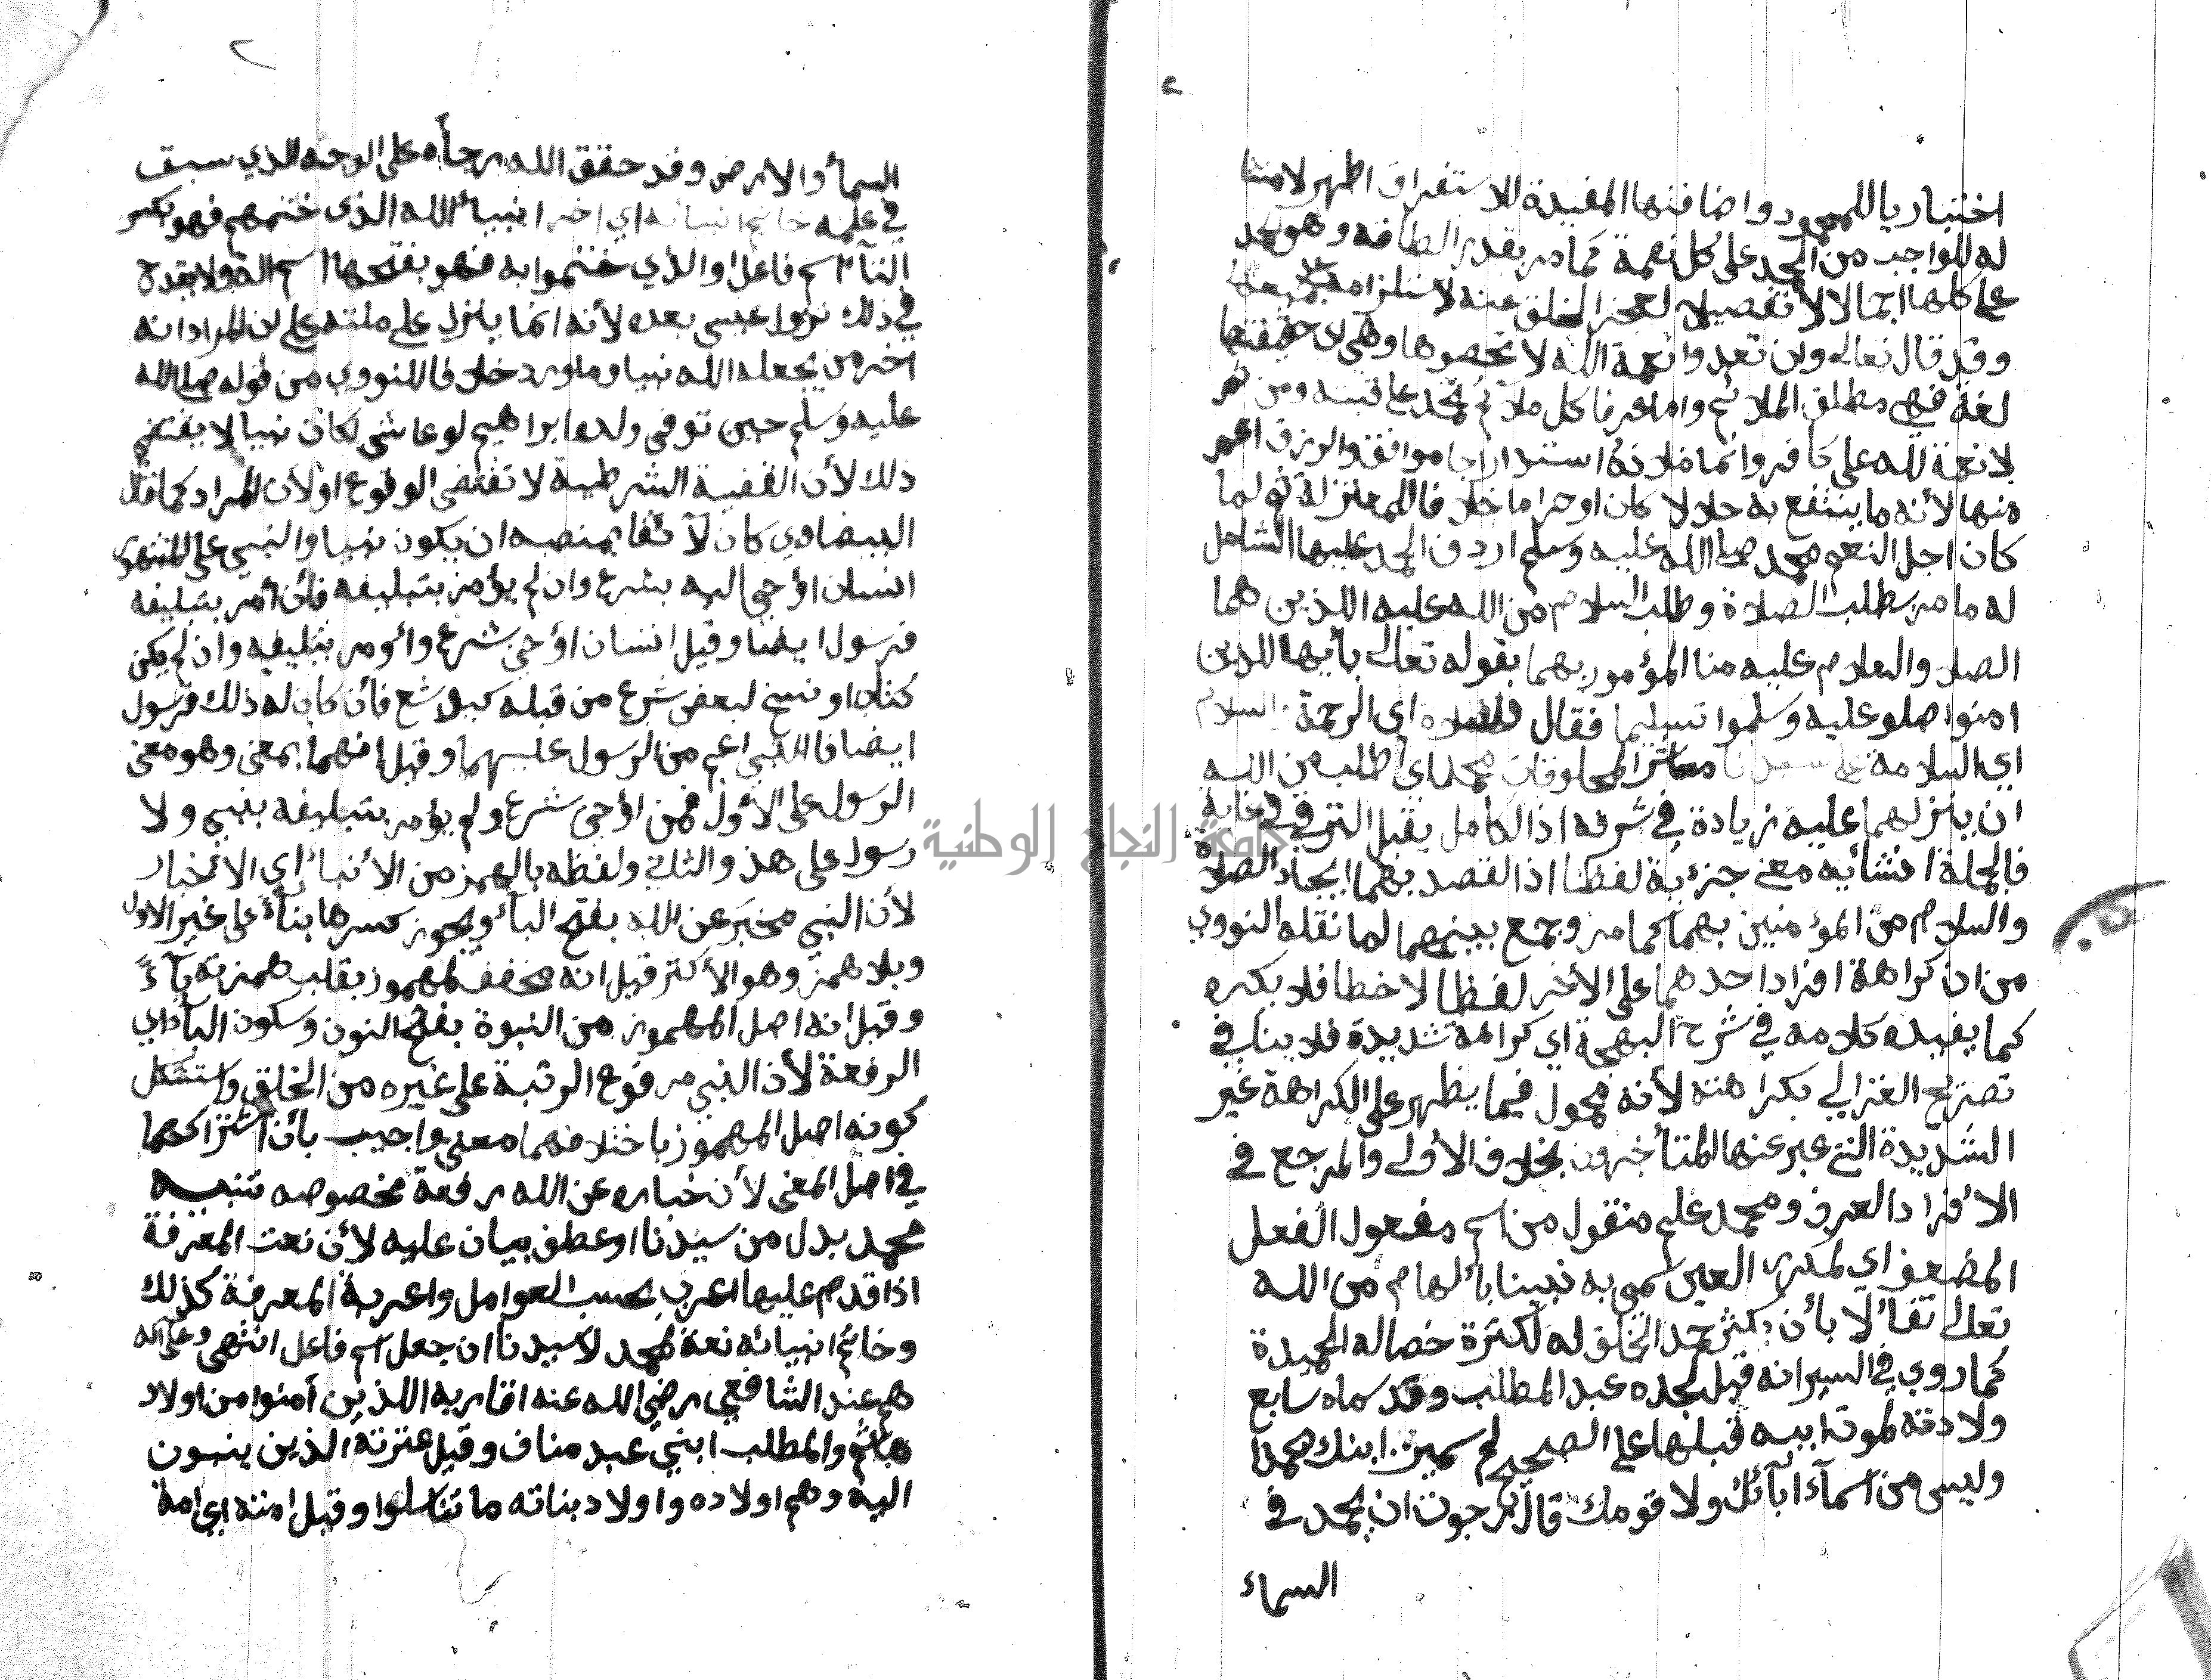 اختيار يا للمحمود واضافتها المفيدة للاستغراق اظهر لامتثا
له للواجب من الحمد على كل نعمة كما مر بقدر الطاقة وهو حمد
على كلها اجمالا لا تفصيلا لعجز الخلق عنه لاستلزامه
وقد قال تعالى وان تعدوا نعمة الله لا تحصوها وهي حقيقتها
لغة فهي مطلق الملائم واما عرفا كل ملائم تحمد عاقبته ومن ثم
لا نعمة لله على كافر وانما ملاذه استدراجا موافقة والرزق اعم
منها لأنه ما ينتفع به حلالا كان او حراما خلافا للمعتزلة ثم لما
كان اجل النعم محمد صلى الله عليه وسلم اردف الحمد عليها الشامل
له ما مر بطلب الصلاة وطلب السلام من الله عليه اللذين هما
الصلا والسلام عليه منا المؤمور بهما بقوله تعالى يأيها الذين
امنوا صلو عليه وسلموا تسليما فقال والصلاه اي الرحمة والسلام
اي السلامة على سيدنا معاشر المخلوقات محمد اي اطلب من الله
ان ينزلهما عليه زيادة في شرفه اذ الكامل يقبل الترقي في غاية
فالجملة انشائيه معنى جزئية لفظا اذ القصد بهما ايجاد الصلاة
والسلام من المؤمنين بهما كما مر وجمع بينهما لما نقله النووي
من ان كراهة افراد احدهما على الأخر لفظا لا خطا فلا يكره
كما يفيده كلامه في شرح البهجة اي كراهة شديدة فلا ينافي
تصريح الغزالي بكراهته لأنه محمول فيما يظهر على الكراهة غير
الشديدة التي عبر عنها المتأخرون بخلاف الأولى والمرجع في
الافراد العرف ومحمد علم منقول من اسم مفعول الفعل
المضعف اي المكرر العين سمي به نبينا بألهام من الله
تعالى تفألا بأن يكثر حمد الخلق له لكثرة خصاله الحميدة
كما روي في السير انه قيل لجده عبد المطلب وقد سماه سابع
ولادته لموت ابيه قبلها على الصحيح لم سميت ابنك محمدا
وليس من اسمآء ابآئك ولا قومك قال رجوت ان يحمد في
السماء
السمأ والارض وقد حقق الله رجأه على الوجه الذي سبق
في علمه خاتم انبيائه اي اخر انبيأ الله الذى ختمهم فهو بكسر
التآ اسم فاعل او الذي ختموا به فهو بفتحها اسم الة ولا يقدح
في ذلك نزول عيسى بعده لأنه انما ينزل على ملته على ان المراد انه
اخر من يجعله الله نبيا وما ورد خلافا للنووي من قوله صلى الله
عليه وسلم حين توفي ولده ابراهيم لو عاش لكان نبيا لا يقتضي
ذلك لأن القضية الشرطية لا تقتضى الوقوع او لأن المراد كما قال
البيضاوي كان لآئقا بمنصبه ان يكون نبيا والنبي على المشهور
انسان اؤحي اليه بشرع وان لم يؤمر بتبليغه فأن أمر بتبليغه
فرسول ايضا وقيل انسان اؤحي بشرع وائومر بتبليغه وان لم يكن
كتاب او نسخ لبعض شرع من قبله كيوشع فأن كان له ذلك فرسول
ايضا فالنبي اعم من الرسول عليهما وقيل انهما بمعنى وهو معنى
الرسول على الأول فمن اؤحى شرع ولم يؤمر بتبليغه بنبي ولا
رسول على هذ والثاني ولفظه بالهمز من الأنباء اي الاخبار
لأن النبي مخبر عن الله بفتح البأ ويجوز كسرها بنأ على غير الاول
وبلا همز وهو الأكثر قيل انه مخفف المهموز بقلب همزته يآءً
وقيل انه اصل المهموز من النبوة بفتح النون وسكون البآ اي
الرفعة لأن النبي مرفوع الرتبة على غيره من الخلق واستشكل
كونه اصل المهموز باختلافهما معنى واجيب بأن اشتراكهما
في اصل المعنى لأن اخباره عن الله رفعة مخصوصه تنبيه
محمد بدل من سيدنا او عطف بيان عليه لأن نعت المعرفة
اذا قدم عليها اعرب بحسب العوامل واعربة المعرفة كذلك
وخاتم انبيائه نعة لمحمد لا سيدنا ان جعل اسم فاعل انتهى وعلى اله
هم عند الشافعي رضي الله عنه اقاربه اللذين آمنوا من اولاد
هاشم والمطلب ابني عبد مناف وقيل عترته الذين ينسبون
اليه وهم اولاده واولاد بناته ما تناسلوا وقيل امته اي امة
جامعة النجاح الوطنية